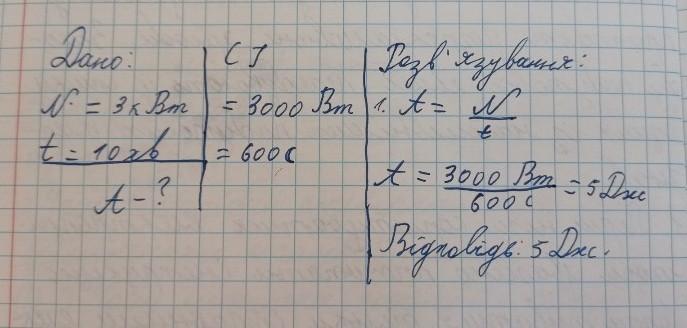 Дано:
N = 3кВт
t = 10хв
A - ?
СІ
= 3000 Вт
= 600с
Розв'язування:
1. A = N/t
A = 3000 Вт/600с = 5 Дж
Відповідь: 5 Дж.